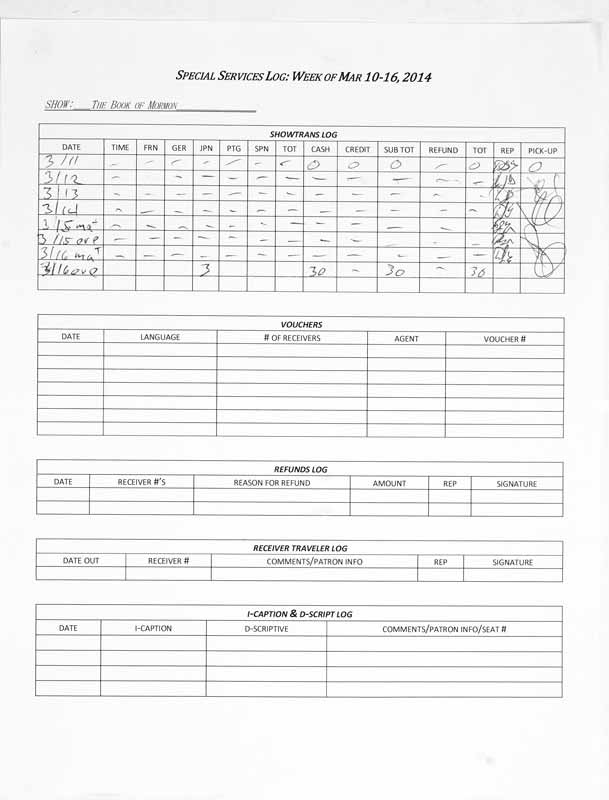 SPECIAL SERVICES LOG: WEEK OF MAR 10-16, 2014
SHOW: THE BOOK OF MORMON
SHOWTRANS LOG
DATE TIME FRN GER JPN PTG SPN TOT CASH CREDIT SUB TOT REFUND TOT REP PICK-UP
3/11 - - - - - - - 0 0 0 - 0 0
3/12 - - - - - - - - - - - -
3/13 - - - - - - - - - - - -
3/14 - - - - - - - - - - - -
3/15 mat - - - - - - - - - - - -
3/15 eve - - - - - - - - - - - -
3/16 mat - - - - - - - - - - - -
3/16 eve 3 30 - 30 30
VOUCHERS
DATE LANGUAGE # OF RECEIVERS AGENT VOUCHER #
REFUNDS LOG
DATE RECEIVER #'S REASON FOR REFUND AMOUNT REP SIGNATURE
RECEIVER TRAVELER LOG
DATE OUT RECEIVER # COMMENTS/PATRON INFO REP SIGNATURE
I-CAPTION & D-SCRIPT LOG
DATE I-CAPTION D-SCRIPTIVE COMMENTS/PATRON INFO/SEAT #